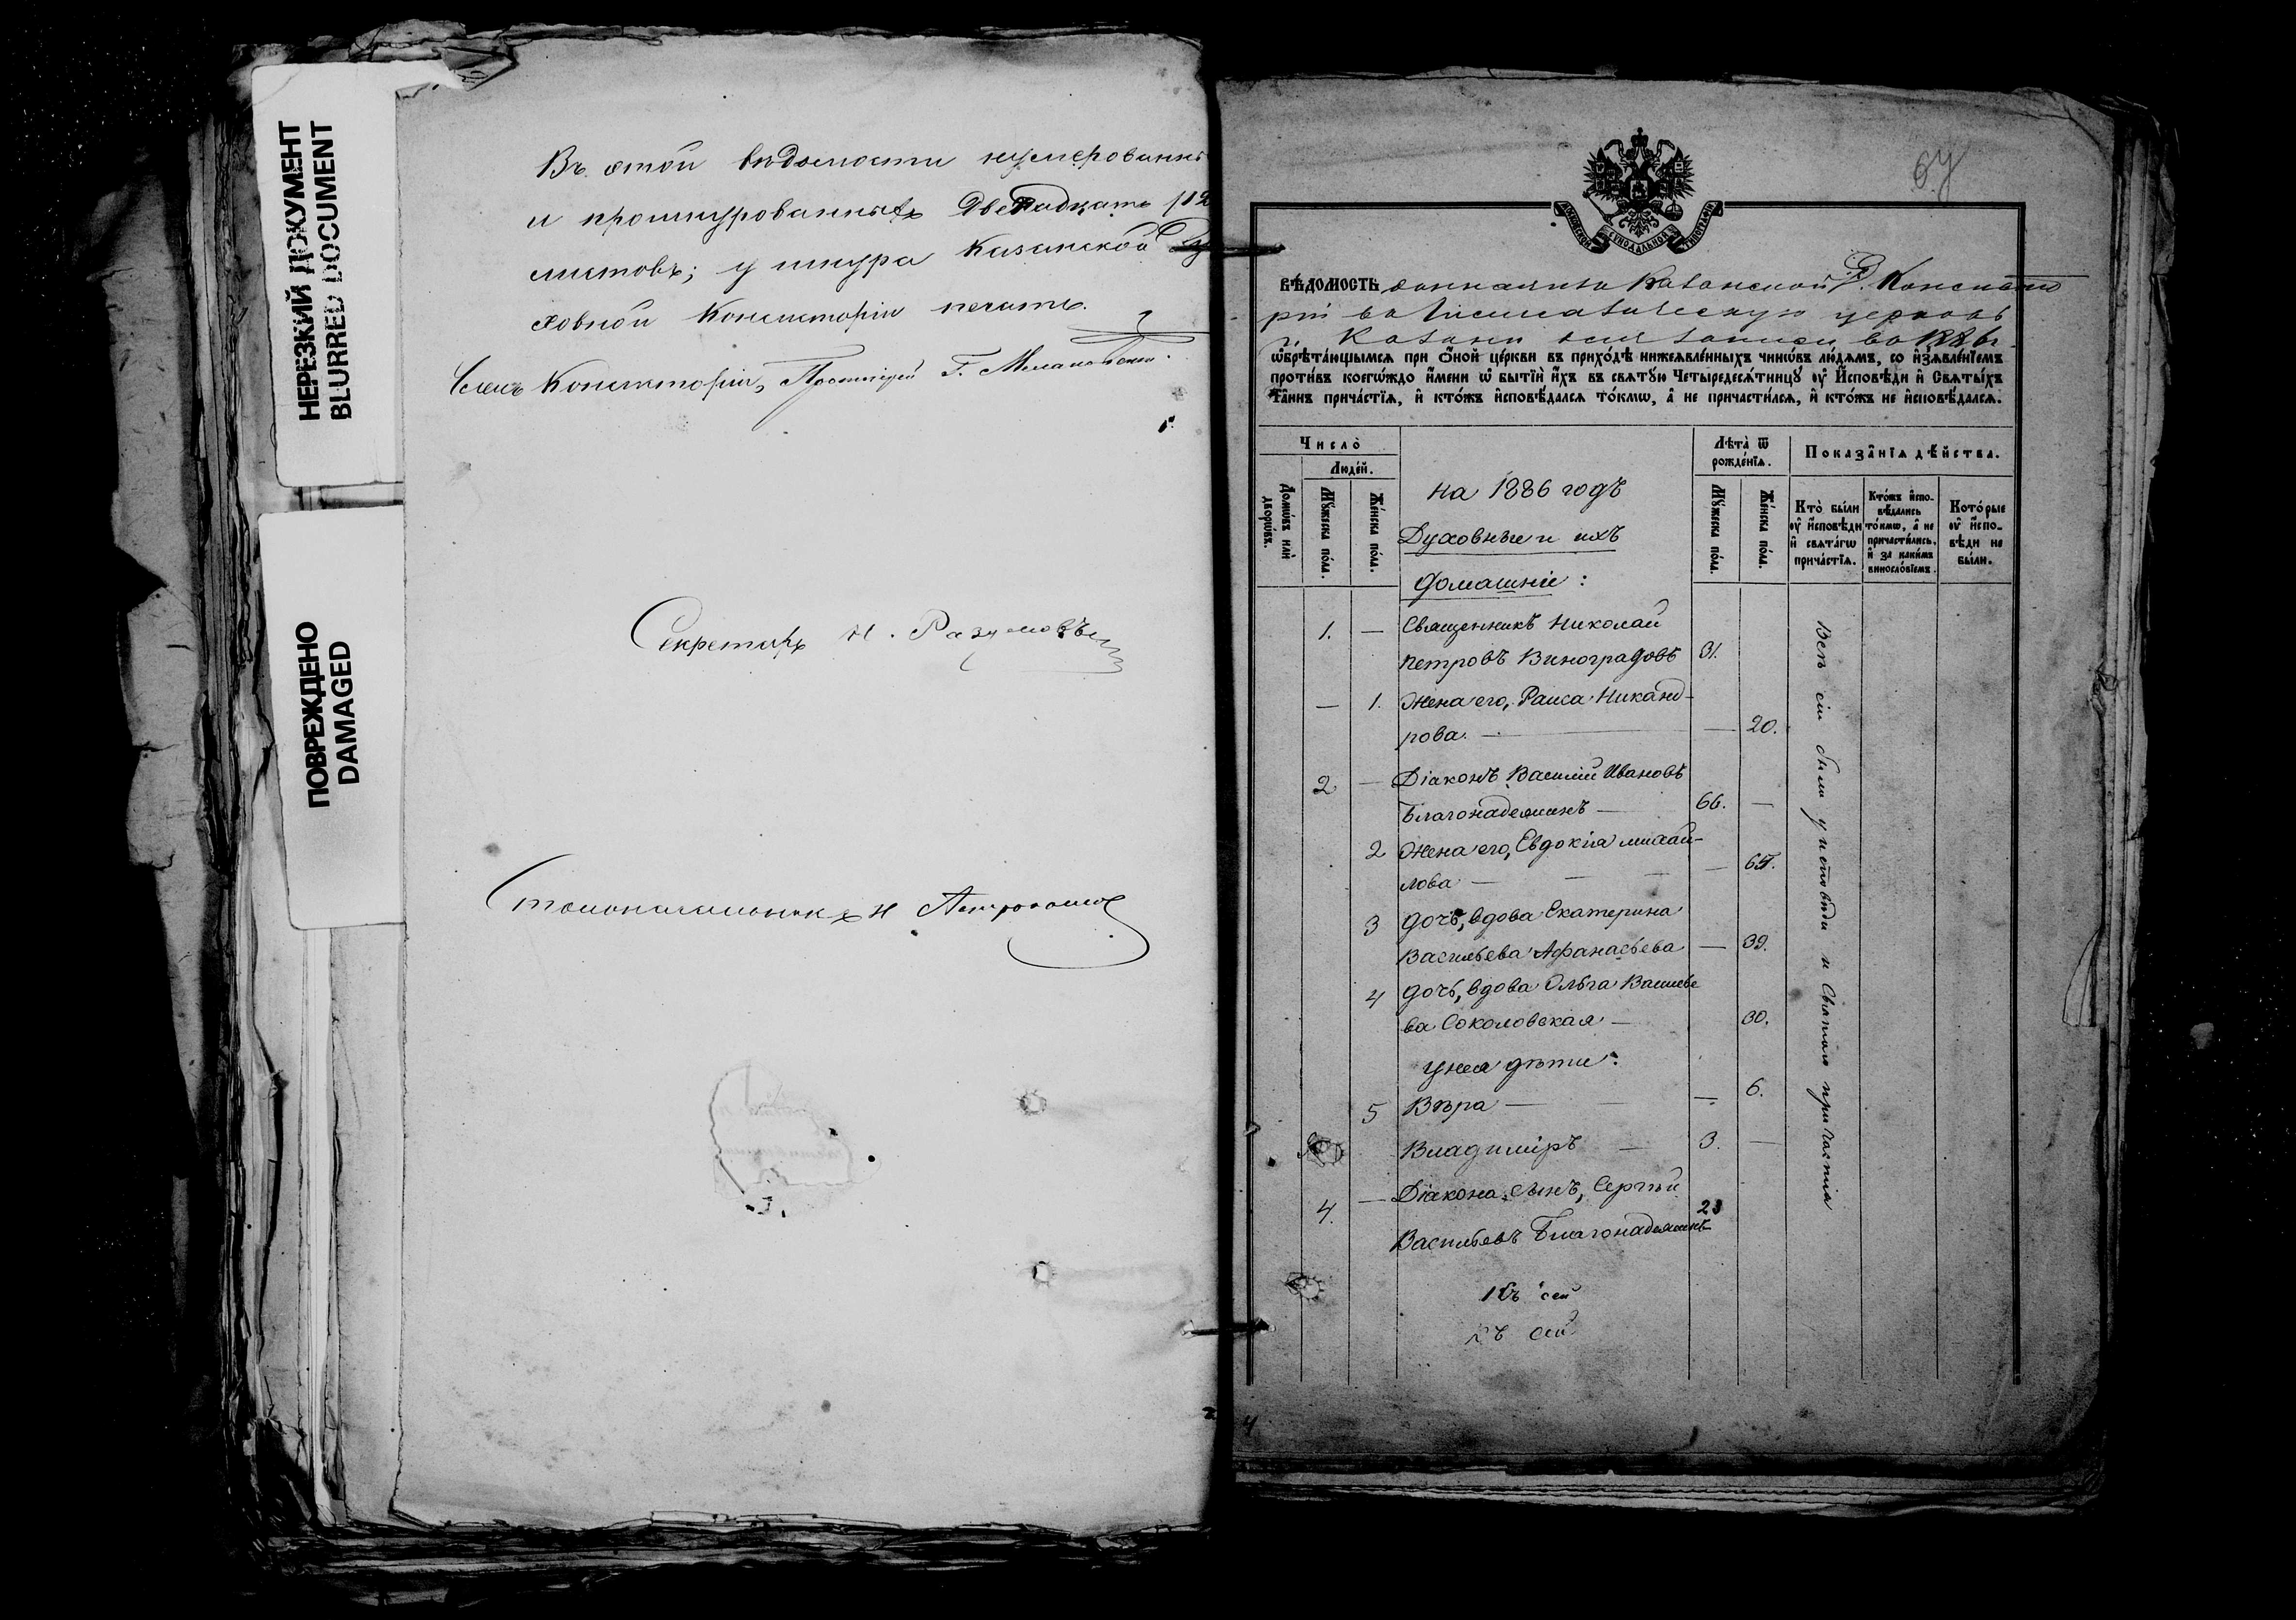 НЕРЕЗКИЙ ДОКУМЕНТ
BLURRED DOCUMENT
ПОВРЕЖДЕНО
DAMAGED
Въ этой вѣдомости нумерованны
и прошнурованныхъ двенадцать /12
листовъ; у шнура Казанской Ду
ховной Консисторіи печать.
Членъ Консисторіи, Протоіерей Г.
Секретарь Н. Разумовъ
Столоначальникъ Н
64
МОСКОВСКОЙ СѴНОДАЛЬНОЙ ТИПОГРАФІИ
ВѢДОМОСТЬ данная изъ Казанской Д. Консисто
ріи въ церковь
г. Казани для записи во 1886 г.
ѡбрѣта́ющымсѧ при ѻ҆́ной це́ркви въ прихо́дѣ нижеѧвле́нныхъ чинѡ́въ лю́дѧмъ, со и҆з̾ѧвле́нїемъ
проти́въ коегѡ́ждо и҆́мени ѡ҆ бытїѝ и҆́хъ въ свѧту́ю Четыредесѧ́тницу ᲂу҆ И҆сповѣ́ди и҆ Свѧты́хъ
Та̑инъ прича́стїѧ, и҆ кто́жъ и҆сповѣ́далсѧ то́кмѡ, а҆ не причасти́лсѧ, и҆ кто́жъ не и҆сповѣ́далсѧ.
Число̀
Люде́й.
Домѡ́въ илѝ дворѡ́въ.
Му́жеска по́ла.
Же́нска по́ла.
Лѣта̀ ѿ рожде́нїѧ.
Му́жеска по́ла.
Же́нска по́ла.
Показа̑нїѧ дѣ́йства.
Кто̀ бы́ли ᲂу҆ и҆сповѣ́ди и҆ свѧта́гѡ прича́стїѧ.
Кто́жъ и҆спо-вѣ́дались то́кмѡ, а҆ не причасти́лись, и҆ за каки́мъ винослов́їемъ.
Кото́рые ᲂу҆ и҆спо-вѣ́ди не бы́ли.
На 1886 годъ
Духовные и ихъ
домашніе:
1. — Священникъ Николай
Петровъ Виноградовъ 31.
— 1. Жена его, Раиса Никанд-
рова. — — 20.
2 — Діаконъ Василій Ивановъ
Благонадеждинъ — 66. —
2 Жена его, Евдокія Михаи-
лова — — — —
3 Дочь, вдова Екатерина
Васильева Афанасьева — 39.
4 Дочь, вдова Ольга Василье
ва Соколовская — 30.
У нея дѣти:
5 Вѣра — — 6.
Владиміръ — 3. —
4. — Діакона сынъ, Сергѣй
Васильевъ Благонадеждинъ 23
Всѣ сіи были у исповѣди и Святаго причастія